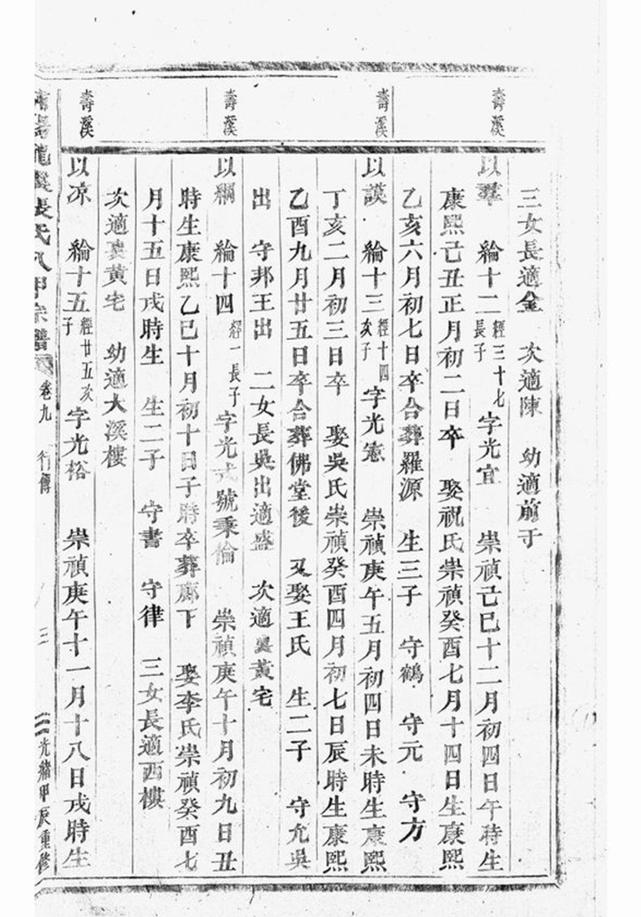 三女長適金　次適陳　幼適前于
壽溪
以羣　綸十二經三十七長子　字光宜　崇禎己巳十二月初四日午時生
康熙己丑正月初二日卒　娶祝氏崇禎癸酉七月十四日生康熙
乙亥六月初七日卒合葬羅源　生三子　守鶴　守元　守方
壽溪
以謨　綸十三經十四次子　字光憲　崇禎庚午五月初四日未時生康熙
丁亥二月初三日卒　娶吳氏崇禎癸酉四月初七日辰時生康熙
乙酉九月廿五日卒合葬佛堂後　又娶王氏　生二子　守允吳
出　守邦王出　二女長吳出適盛　次適裏黃宅
壽溪
以綱　綸十四經一長子　字光戎號秉倫　崇禎庚午十月初九日丑
時生康熙乙巳十月初十日子時卒葬廊下　娶李氏崇禎癸酉七
月十五日戌時生　生二子　守書　守律　三女長適西樓
次適裏黃宅　幼適大溪樓
壽溪
以凉　綸十五經廿五次子　字光裕　崇禎庚午十一月十八日戌時生
張氏八甲宗譜　卷九　行傳　三　光緒甲辰重修